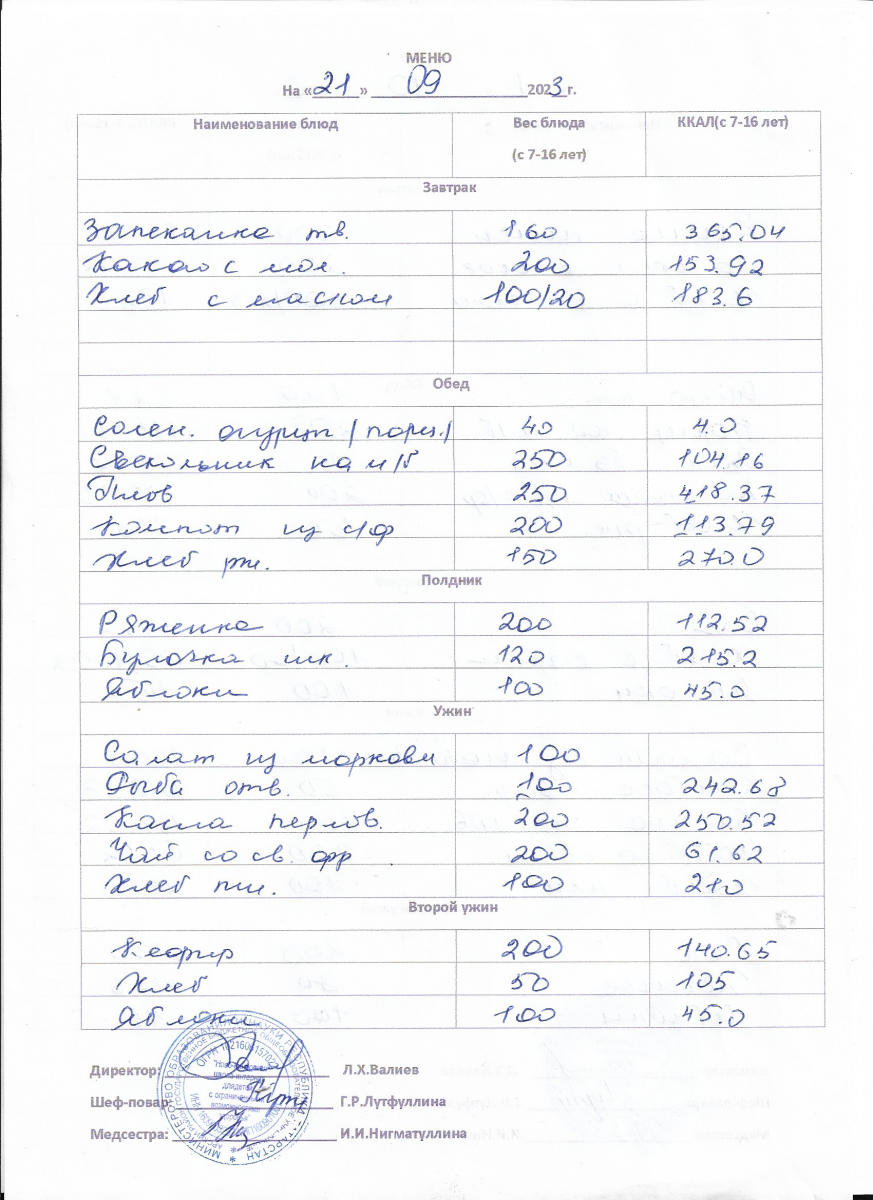 МЕНЮ
На «21» 09 2023г.
Наименование блюд Вес блюда (с 7-16 лет) ККАЛ(с 7-16 лет)
Завтрак
Запеканка тв. 160 365.04
Какао с мол. 200 153.92
Хлеб с маслом 100/20 183.6
Обед
Солен. огурцы /порц./ 40 4.0
Свекольник на м/б 250 104.16
Плов 250 418.37
Компот из с/ф 200 113.79
Хлеб рж. 150 270.0
Полдник
Ряженка 200 112.52
Булочка шк. 120 215.2
Яблоки 100 45.0
Ужин
Салат из моркови 100
Рыба отв. 100 242.68
Каша перлов. 200 250.52
Чай со св. фр 200 61.62
Хлеб пш. 100 210
Второй ужин
Кефир 200 140.65
Хлеб 50 105
Яблоки 100 45.0
Директор: Л.Х.Валиев
Шеф-повар: Г.Р.Лутфуллина
Медсестра: И.И.Нигматуллина
МИНИСТЕРСТВО ОБРАЗОВАНИЯ И НАУКИ РЕСПУБЛИКИ ТАТАРСТАН